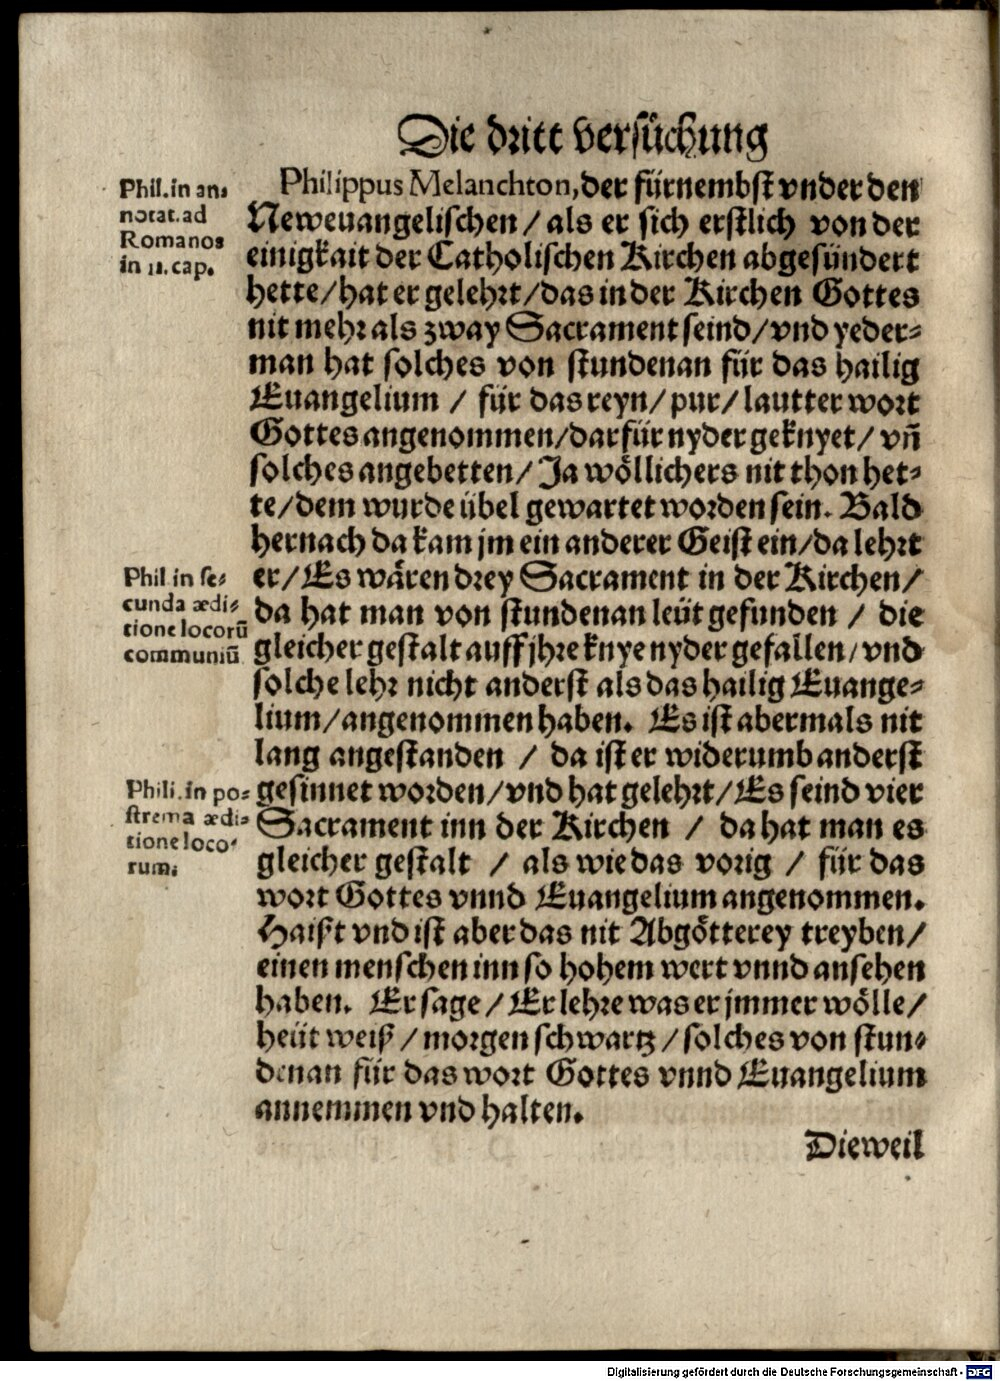 Die dritt versůchung
Phil. in an-
notat. ad
Romanos
in 11. cap.
Philippus Melanchton, der fürnembst vnder den
Neweuangelischen / als er sich erstlich von der
einigkait der Catholischen Kirchen abgesündert
hette / hat er gelehrt / das in der Kirchen Gottes
nit mehr als zway Sacrament seind / vnd yeder-
man hat solches von stundenan für das hailig
Euangelium / für das reyn / pur / lautter wort
Gottes angenommen / darfür nyder geknyet / vñ
solches angebetten / Ja wöllichers nit thon het-
te / dem wurde übel gewartet worden sein. Bald
hernach da kam jm ein anderer Geist ein / da lehrt
Phil. in se-
cunda ædi-
tione locorū
communiū
er / Es wären drey Sacrament in der Kirchen /
da hat man von stundenan leüt gefunden / die
gleicher gestalt auff jhre knye nyder gefallen / vnd
solche lehr nicht anderst als das hailig Euange-
lium / angenommen haben. Es ist abermals nit
lang angestanden / da ist er widerumb anderst
Phili. in po-
strema ædi-
tione loco-
rum.
gesinnet worden / vnd hat gelehrt / Es seind vier
Sacrament inn der Kirchen / da hat man es
gleicher gestalt / als wie das vorig / für das
wort Gottes vnnd Euangelium angenommen.
Haißt vnd ist aber das nit Abgötterey treyben /
einen menschen inn so hohem wert vnnd ansehen
haben. Er sage / Er lehre was er jmmer wölle /
heüt weiß / morgen schwartz / solches von stun-
denan für das wort Gottes vnnd Euangelium
annemmen vnd halten.
Dieweil
Digitalisierung gefördert durch die Deutsche Forschungsgemeinschaft - DFG